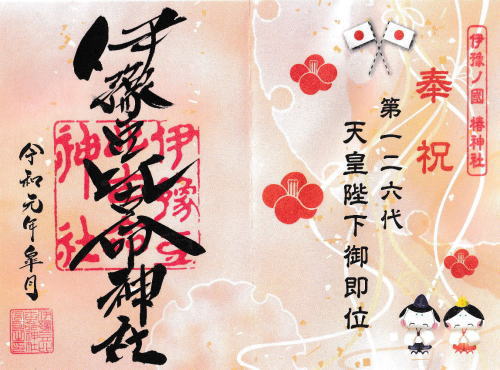 伊豫ノ國 椿神社
奉祝
第一二六代
天皇陛下御即位
伊豫豆比古命神社
伊豫豆
神社
令和元年皐月